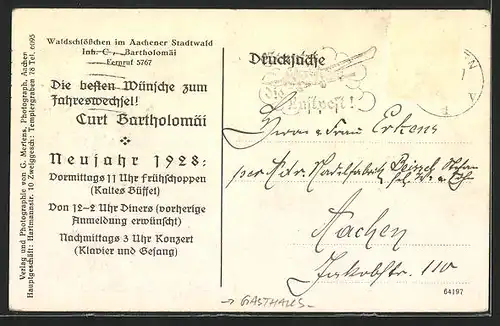 Verlag und Photographie von C. Mertens, Photograph, Aachen
Hauptgeschäft: Hartmannstr. 10 Zweiggesch: Templergraben 78 Tel. 6095
Waldschlößchen im Aachener Stadtwald
Inh. C. Bartholomäi
Fernruf 5767
Die besten Wünsche zum
Jahreswechsel!
Curt Bartholomäi
Neujahr 1928:
Vormittags 11 Uhr Frühschoppen
(Kaltes Büffet)
Von 12–2 Uhr Diners (vorherige
Anmeldung erwünscht)
Nachmittags 3 Uhr Konzert
(Klavier und Gesang)
Drucksache
Luftpost!
Herrn u Frau Erkens
per Adr. Nadelfabrik Beissel
Aachen
Jakobstr. 110
64197
→ GASTHAUS